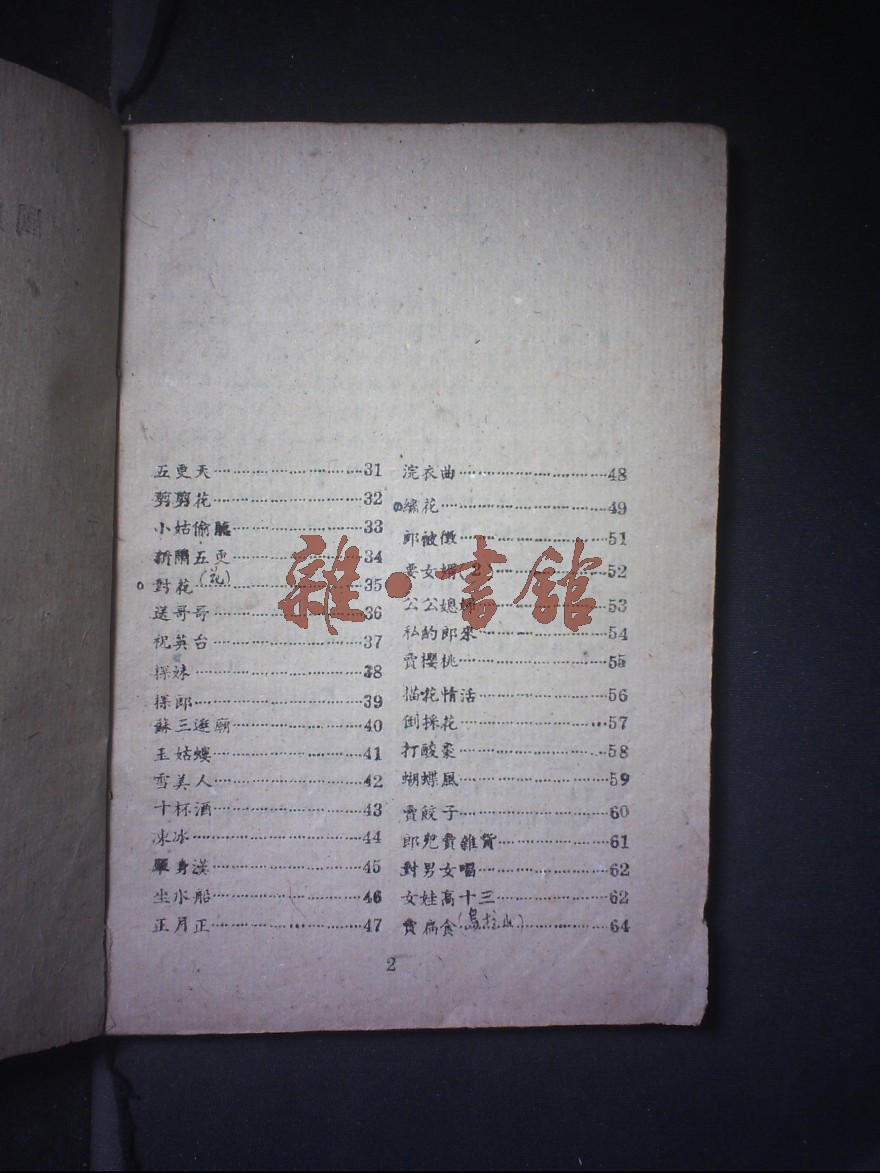 五更天……31
剪剪花……32
小姑偷聽……33
新鬧五更……34
對花(花)……35
送哥哥……36
祝英台……37
探妹……38
探郎……39
蘇三逛廟……40
王姑螻……41
雪美人……42
十杯酒……43
凍冰……44
單身漢……45
坐水船……46
正月正……47
浣衣曲……48
繡花……49
郎被徵……51
要女婿……52
公公媳婦……53
私約郎來……54
賣櫻桃……55
描花情活……56
倒採花……57
打酸棗……58
蝴蝶風……59
賣餃子……60
郎兒賣雜貨……61
對男女唱……62
女娃高十三……62
賣扁食(烏拉山)……64
2
雜·書館